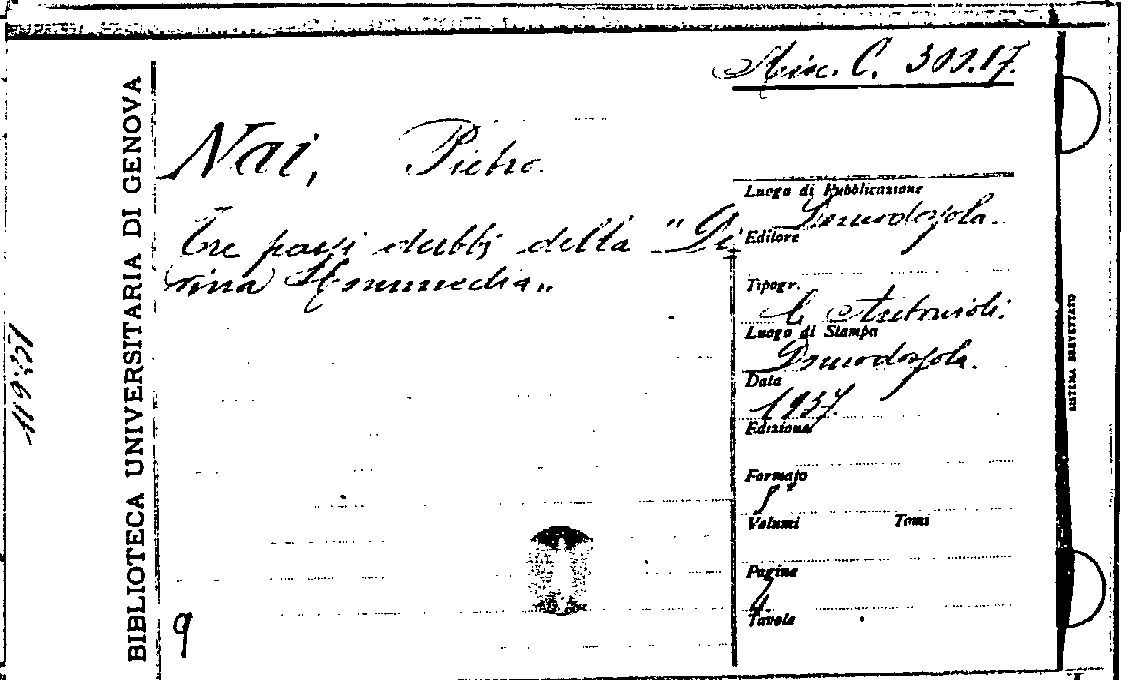 Misc. C. 300.17.
BIBLIOTECA UNIVERSITARIA DI GENOVA
Nai, Pietro.
Tre passi dubbj della "Di
vina Commedia„
Luogo di Pubblicazione
Domodossola.
Editore
Tipogr.
C. Antonioli.
Luogo di Stampa
Domodossola.
Data
1937.
Edizione
Formato
8°
Volumi Tomi
Pagine
4
Tavole
SISTEMA BREVETTATO
9